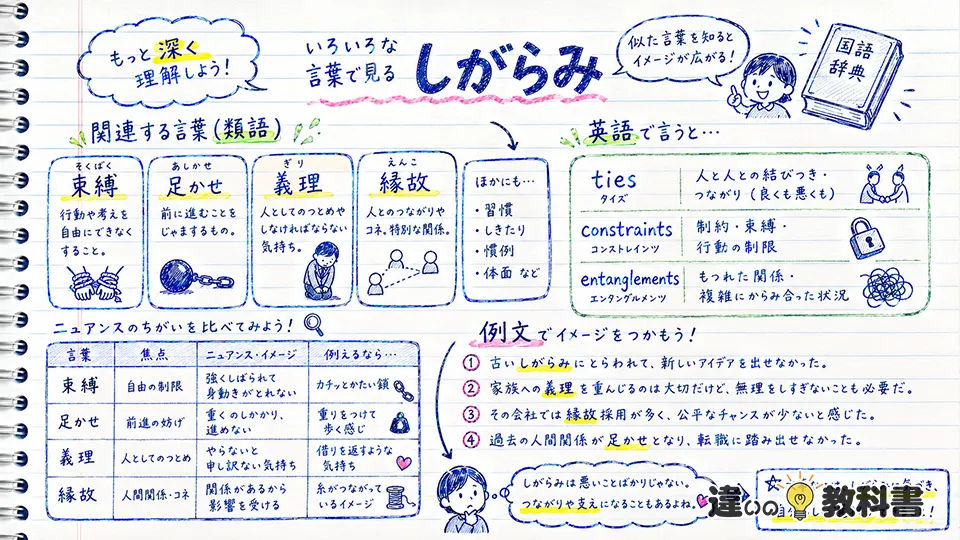 もっと深く
理解しよう！
いろいろな
言葉で見る
しがらみ
似た言葉を知ると
イメージが広がる！
国語
辞典
関連する言葉（類語）
そくばく
束縛
行動や考えを
自由にできなく
すること。
あしかせ
足かせ
前に進むことを
じゃまするもの。
ぎり
義理
人としてのつとめや
しなければならない
気持ち。
えんこ
縁故
人とのつながりや
コネ。特別な関係。
ほかにも…
・習慣
・しきたり
・慣例
・体面 など
英語で言うと…
ties
タイズ
人と人との結びつき・
つながり（良くも悪くも）
constraints
コンストレインツ
制約・束縛・
行動の制限
entanglements
エンタングルメンツ
もつれた関係・
複雑にからみ合った状況
ニュアンスのちがいを比べてみよう！
言葉 焦点 ニュアンス・イメージ 例えるなら…
束縛 自由の制限 強くしばられて
身動きがとれない カチッとかたい鎖
足かせ 前進の妨げ 重くのしかかり、
進めない 重りをつけて
歩く感じ
義理 人としてのつとめ やらないと
申し訳ない気持ち 借りを返すような
気持ち
縁故 人間関係・コネ 関係があるから
影響を受ける 糸がつながって
いるイメージ
例文でイメージをつかもう！
① 古いしがらみにとらわれて、新しいアイデアを出せなかった。
② 家族への義理を重んじるのは大切だけど、無理をしすぎないことも必要だ。
③ その会社では縁故採用が多く、公平なチャンスが少ないと感じた。
④ 過去の人間関係が足かせとなり、転職に踏み出せなかった。
しがらみは悪いことばかりじゃない。
つながりや支えになることもあるよね。
違いの教科書